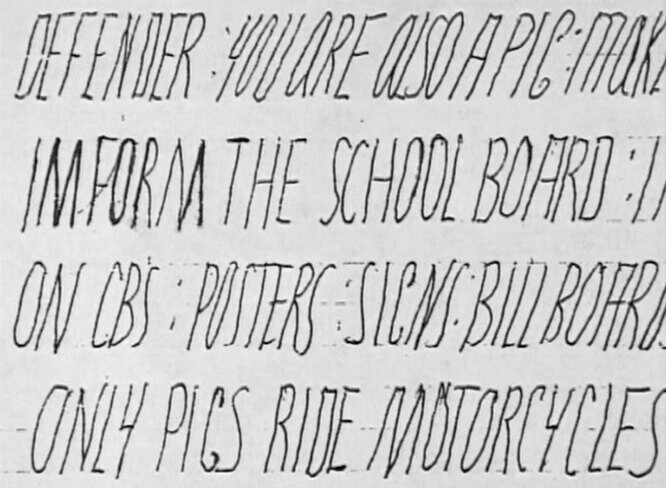 DEFENDER : YOU ARE alSO A PIG : MAKE
IMFORM THE SCHOOL BOARD : 
ON CBS : POSTERS : SIGNS : BILLBOARDS
ONLY PIGS RIDE MOTORCYCLES